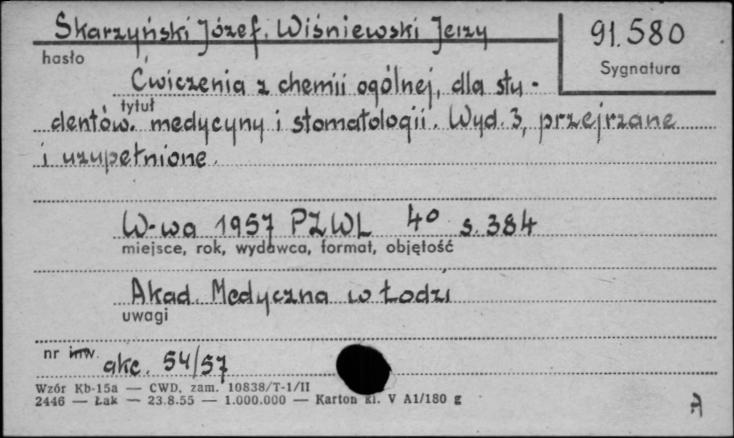 Skarzyński Józef, Wiśniewski Jerzy
91.580
hasło
Sygnatura
Ćwiczenia z chemii ogólnej, dla stu-
tytuł
dentów medycyny i stomatologii. Wyd. 3, przejrzane
i uzupełnione.
W-wa 1957 PZWL 4° s. 384
miejsce, rok, wydawca, format, objętość
Akad. Medyczna w Łodzi
uwagi
nr inw. akc. 54/57
Wzór Kb-15a — CWD, zam. 10838/T-1/II
2446 — Łak — 23.8.55 — 1.000.000 — Karton kl. V A1/180 g
A